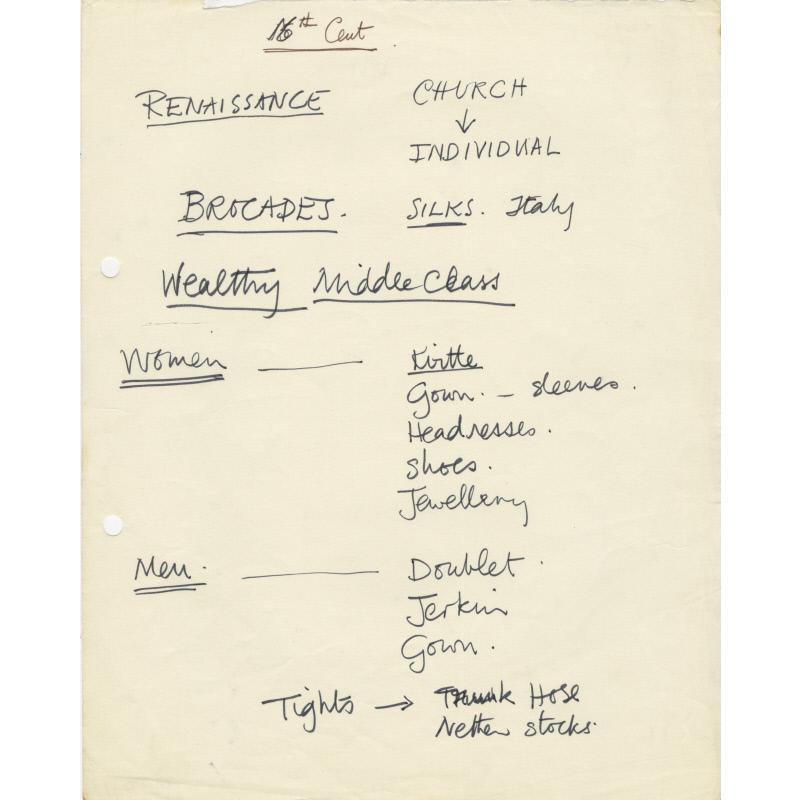 16th Cent.
RENAISSANCE CHURCH
↓
INDIVIDUAL
BROCADES. SILKS. Italy
Wealthy Middle Class
Women — Kirtle
Gown. – sleeves.
Headresses.
Shoes.
Jewellery
Men. — Doublet.
Jerkin
Gown.
Tights → Trunk Hose
Nether stocks.